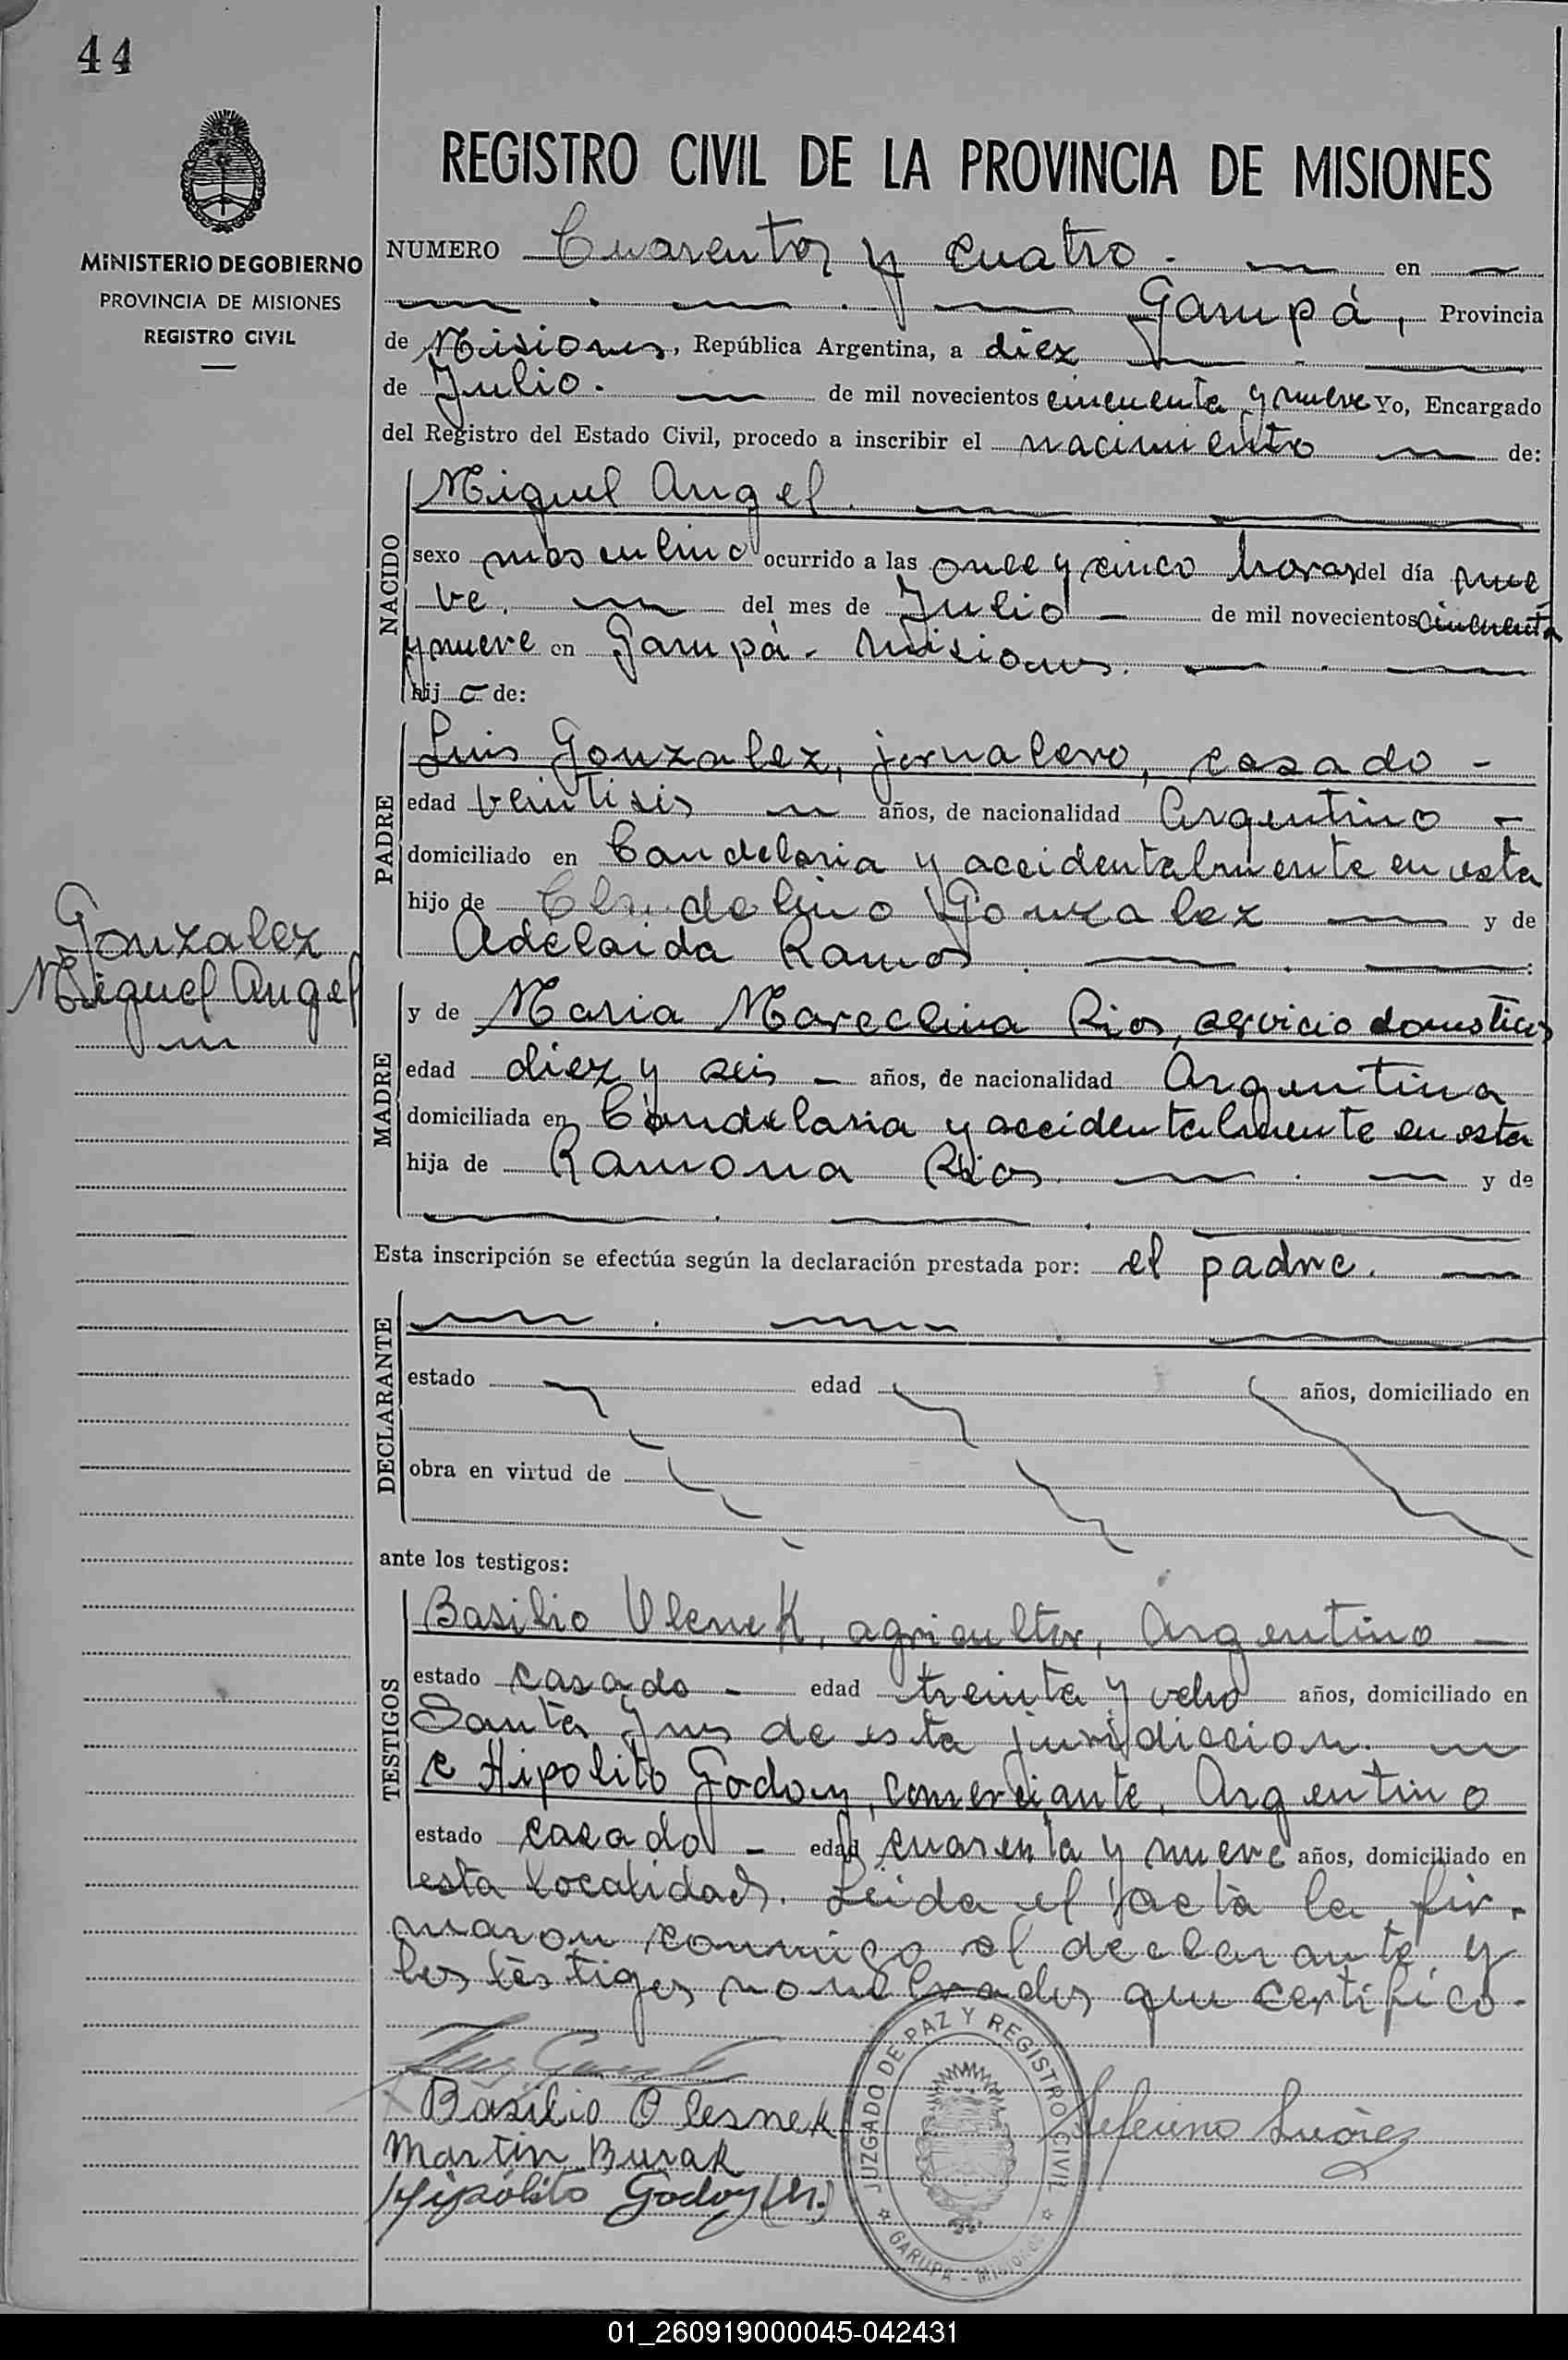 44
MINISTERIO DE GOBIERNO
PROVINCIA DE MISIONES
REGISTRO CIVIL
REGISTRO CIVIL DE LA PROVINCIA DE MISIONES
NUMERO Cuarenta y cuatro. en
Garupá, Provincia
de Misiones, República Argentina, a diez
de Julio. de mil novecientos cincuenta y nueve Yo, Encargado
del Registro del Estado Civil, procedo a inscribir el nacimiento de:
NACIDO
Miguel Angel.
sexo masculino ocurrido a las once y cinco horas del día nue
ve. del mes de Julio de mil novecientos cincuenta
y nueve en Garupá - Misiones.
hijo de:
PADRE
Luis Gonzalez, jornalero, casado -
edad veintiseis años, de nacionalidad Argentino -
domiciliado en Candelaria y accidentalmente en esta
hijo de Gonzalez y de
Adelaida Ramos.
Gonzalez
Miguel Angel
MADRE
y de Maria Rios, servicio domestico
edad diez y seis - años, de nacionalidad Argentina
domiciliada en Candelaria y accidentalmente en esta
hija de Ramona Rios. y de
Esta inscripción se efectúa según la declaración prestada por: el padre.
DECLARANTE
estado edad años, domiciliado en
obra en virtud de
ante los testigos:
TESTIGOS
Basilio Olenek, agricultor, Argentino -
estado casado - edad treinta y ocho años, domiciliado en
Santa Ines de esta jurisdiccion.
e Hipolito Godoy, comerciante, Argentino
estado casado - edad cuarenta y nueve años, domiciliado en
esta localidad. Leida el acta la fir-
maron conmigo el declarante y
los testigos nombrados que certifico.
Basilio Olesnek
Martin Burak
Hipólito Godoy (h.)
JUZGADO DE PAZ Y REGISTRO CIVIL
GARUPA - Misiones
Suárez
01_260919000045-042431